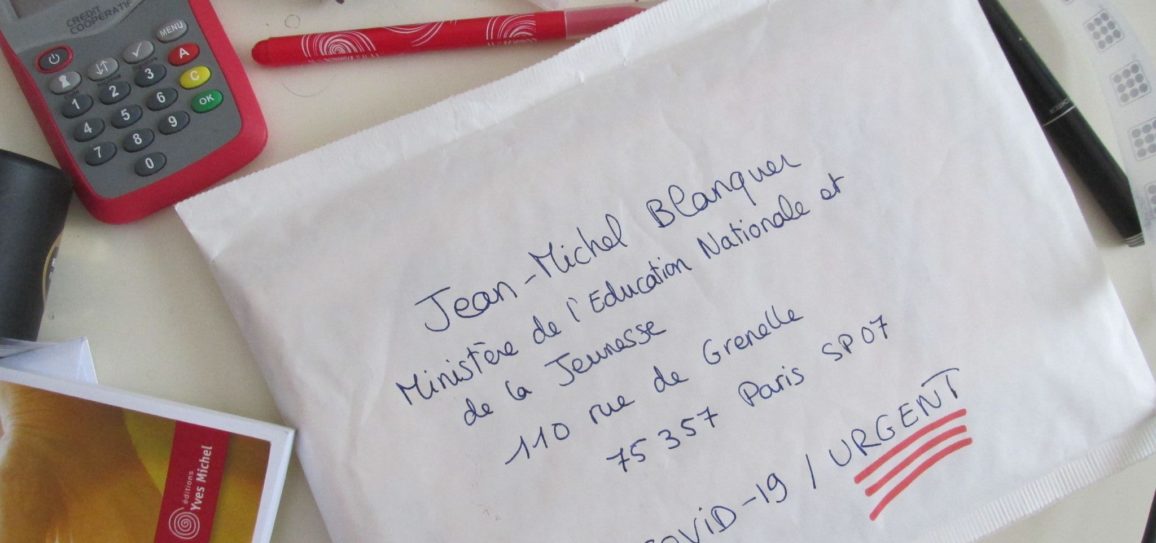 CREDIT
COOPERATIF
MENU
A
C
OK
1 2 3
4 5 6
7 8 9
0
Jean-Michel Blanquer
Ministère de l'Education Nationale et
de la Jeunesse
110 rue de Grenelle
75 357 Paris SP 07
COVID-19 / URGENT
éditions
Yves Michel